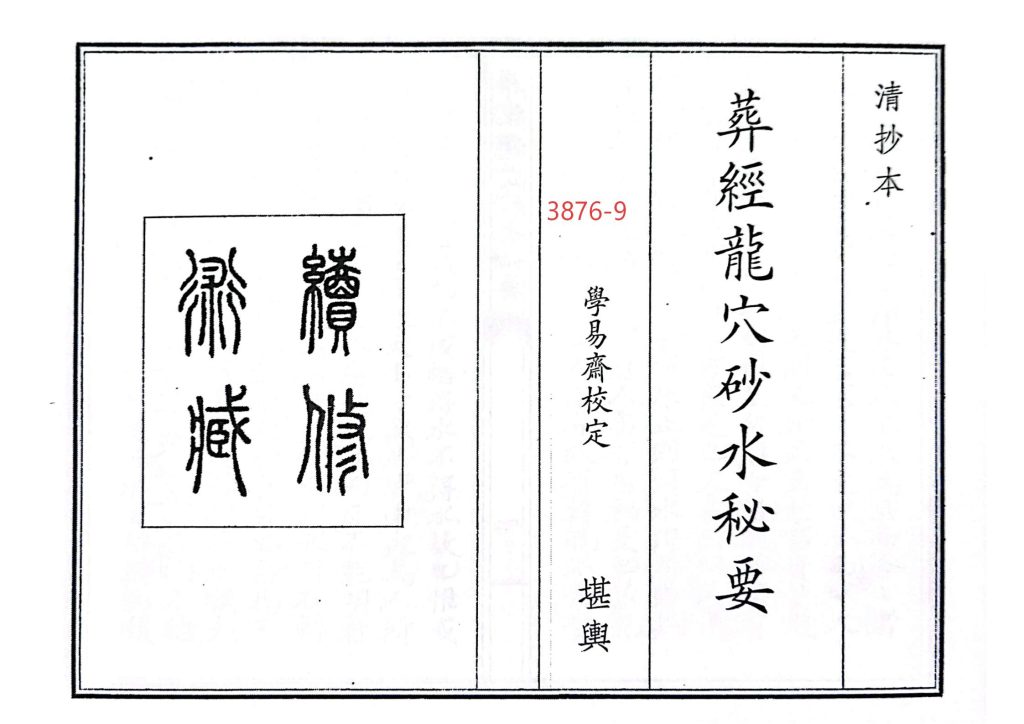 清抄本
葬經龍穴砂水秘要
3876-9
學易齋校定
堪輿
續修
術藏